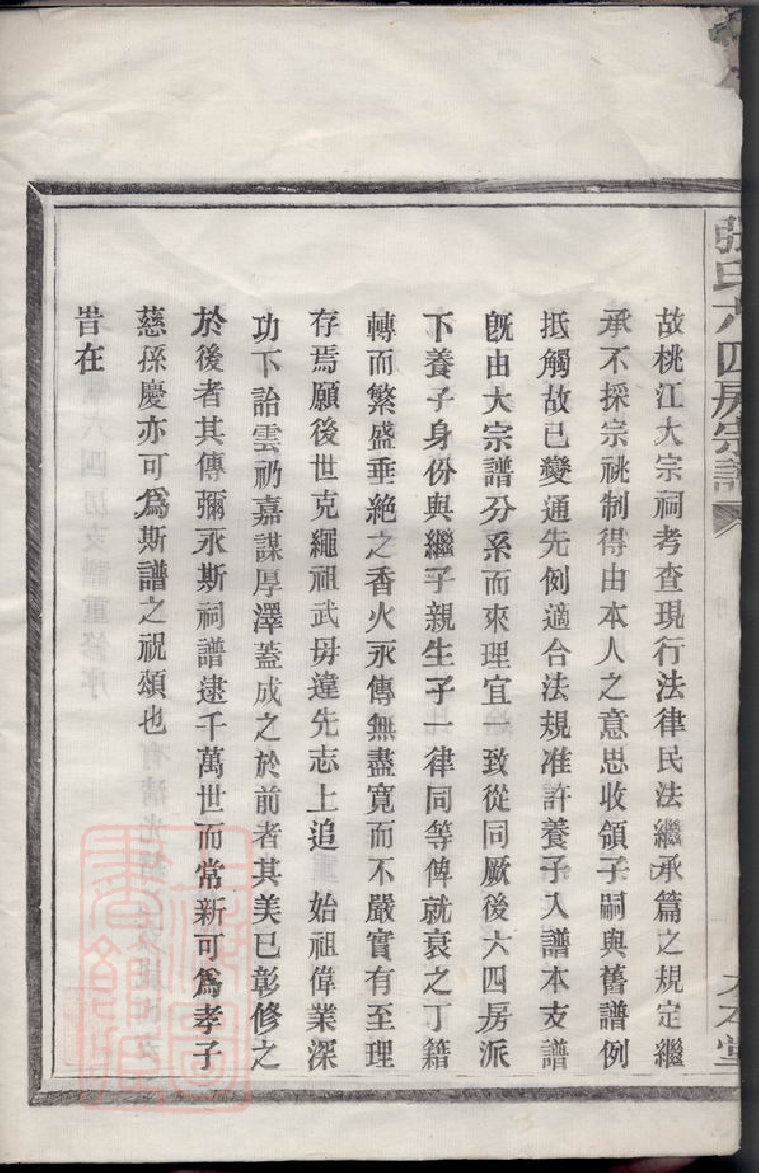 張氏六四房宗譜
六本堂
故桃江大宗祠考查現行法律民法繼承篇之規定繼
承不採宗祧制得由本人之意思收領子嗣與舊譜例
抵觸故已變通先例適合法規准許養子入譜本支譜
既由大宗譜分系而來理宜一致從同厥後六四房派
下養子身份與繼子親生子一律同等俾就衰之丁籍
轉而繁盛垂絶之香火永傳無盡寬而不嚴實有至理
存焉願後世克繩祖武毋違先志上追 始祖偉業深
功下詒雲礽嘉謀厚澤蓋成之於前者其美已彰修之
於後者其傳彌永斯祠譜逮千萬世而常新可爲孝子
慈孫慶亦可爲斯譜之祝頌也
旹在